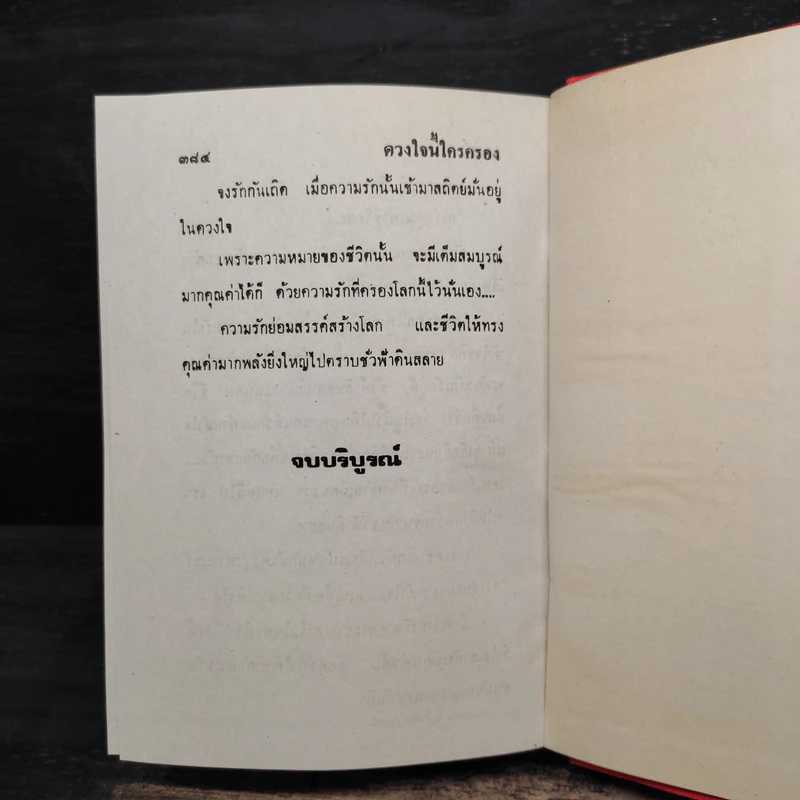 ๓๘๔
ดวงใจนี้ใครครอง
จงรักกันเถิด เมื่อความรักนั้นเข้ามาสถิตย์มั่นอยู่
ในดวงใจ
เพราะความหมายของชีวิตนั้น จะมีเต็มสมบูรณ์
มากคุณค่าได้ก็ ด้วยความรักที่ครองโลกนี้ไว้นั่นเอง....
ความรักย่อมสรรค์สร้างโลก และชีวิตให้ทรง
คุณค่ามากพลังยิ่งใหญ่ไปตราบชั่วฟ้าดินสลาย
จบบริบูรณ์